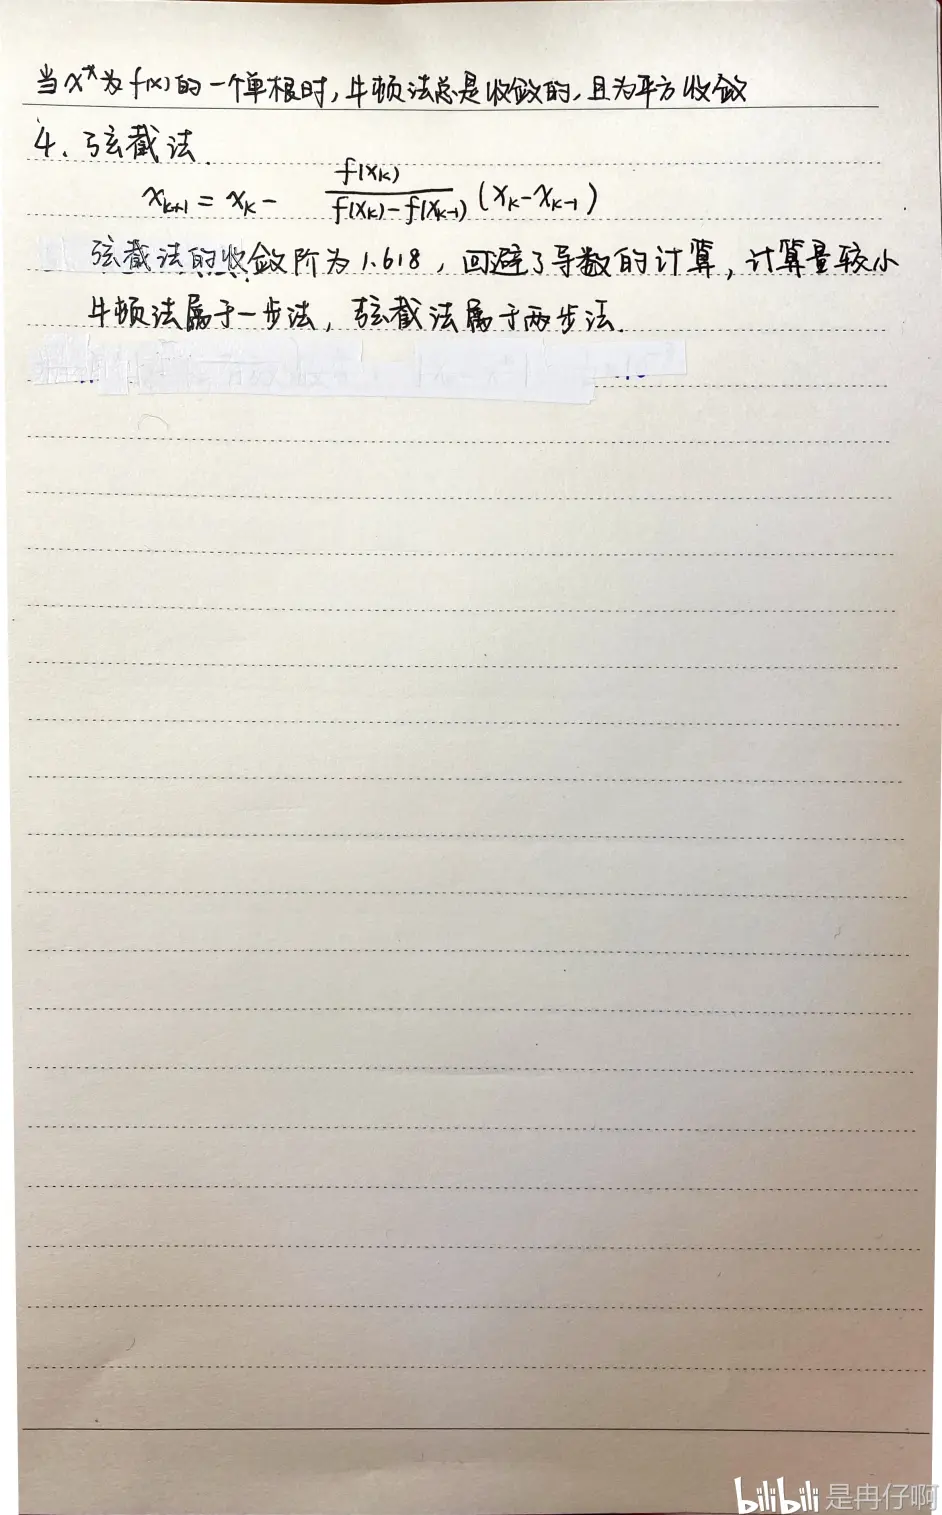 当x*为f(x)的一个单根时,牛顿法总是收敛的,且为平方收敛
4、弦截法.
x_{k+1} = x_k - \frac{f(x_k)}{f(x_k)-f(x_{k-1})} (x_k-x_{k-1})
弦截法的收敛阶为1.618,回避了导数的计算,计算量较小
牛顿法属于一步法,弦截法属于两步法.
bilibili 是冉仔啊